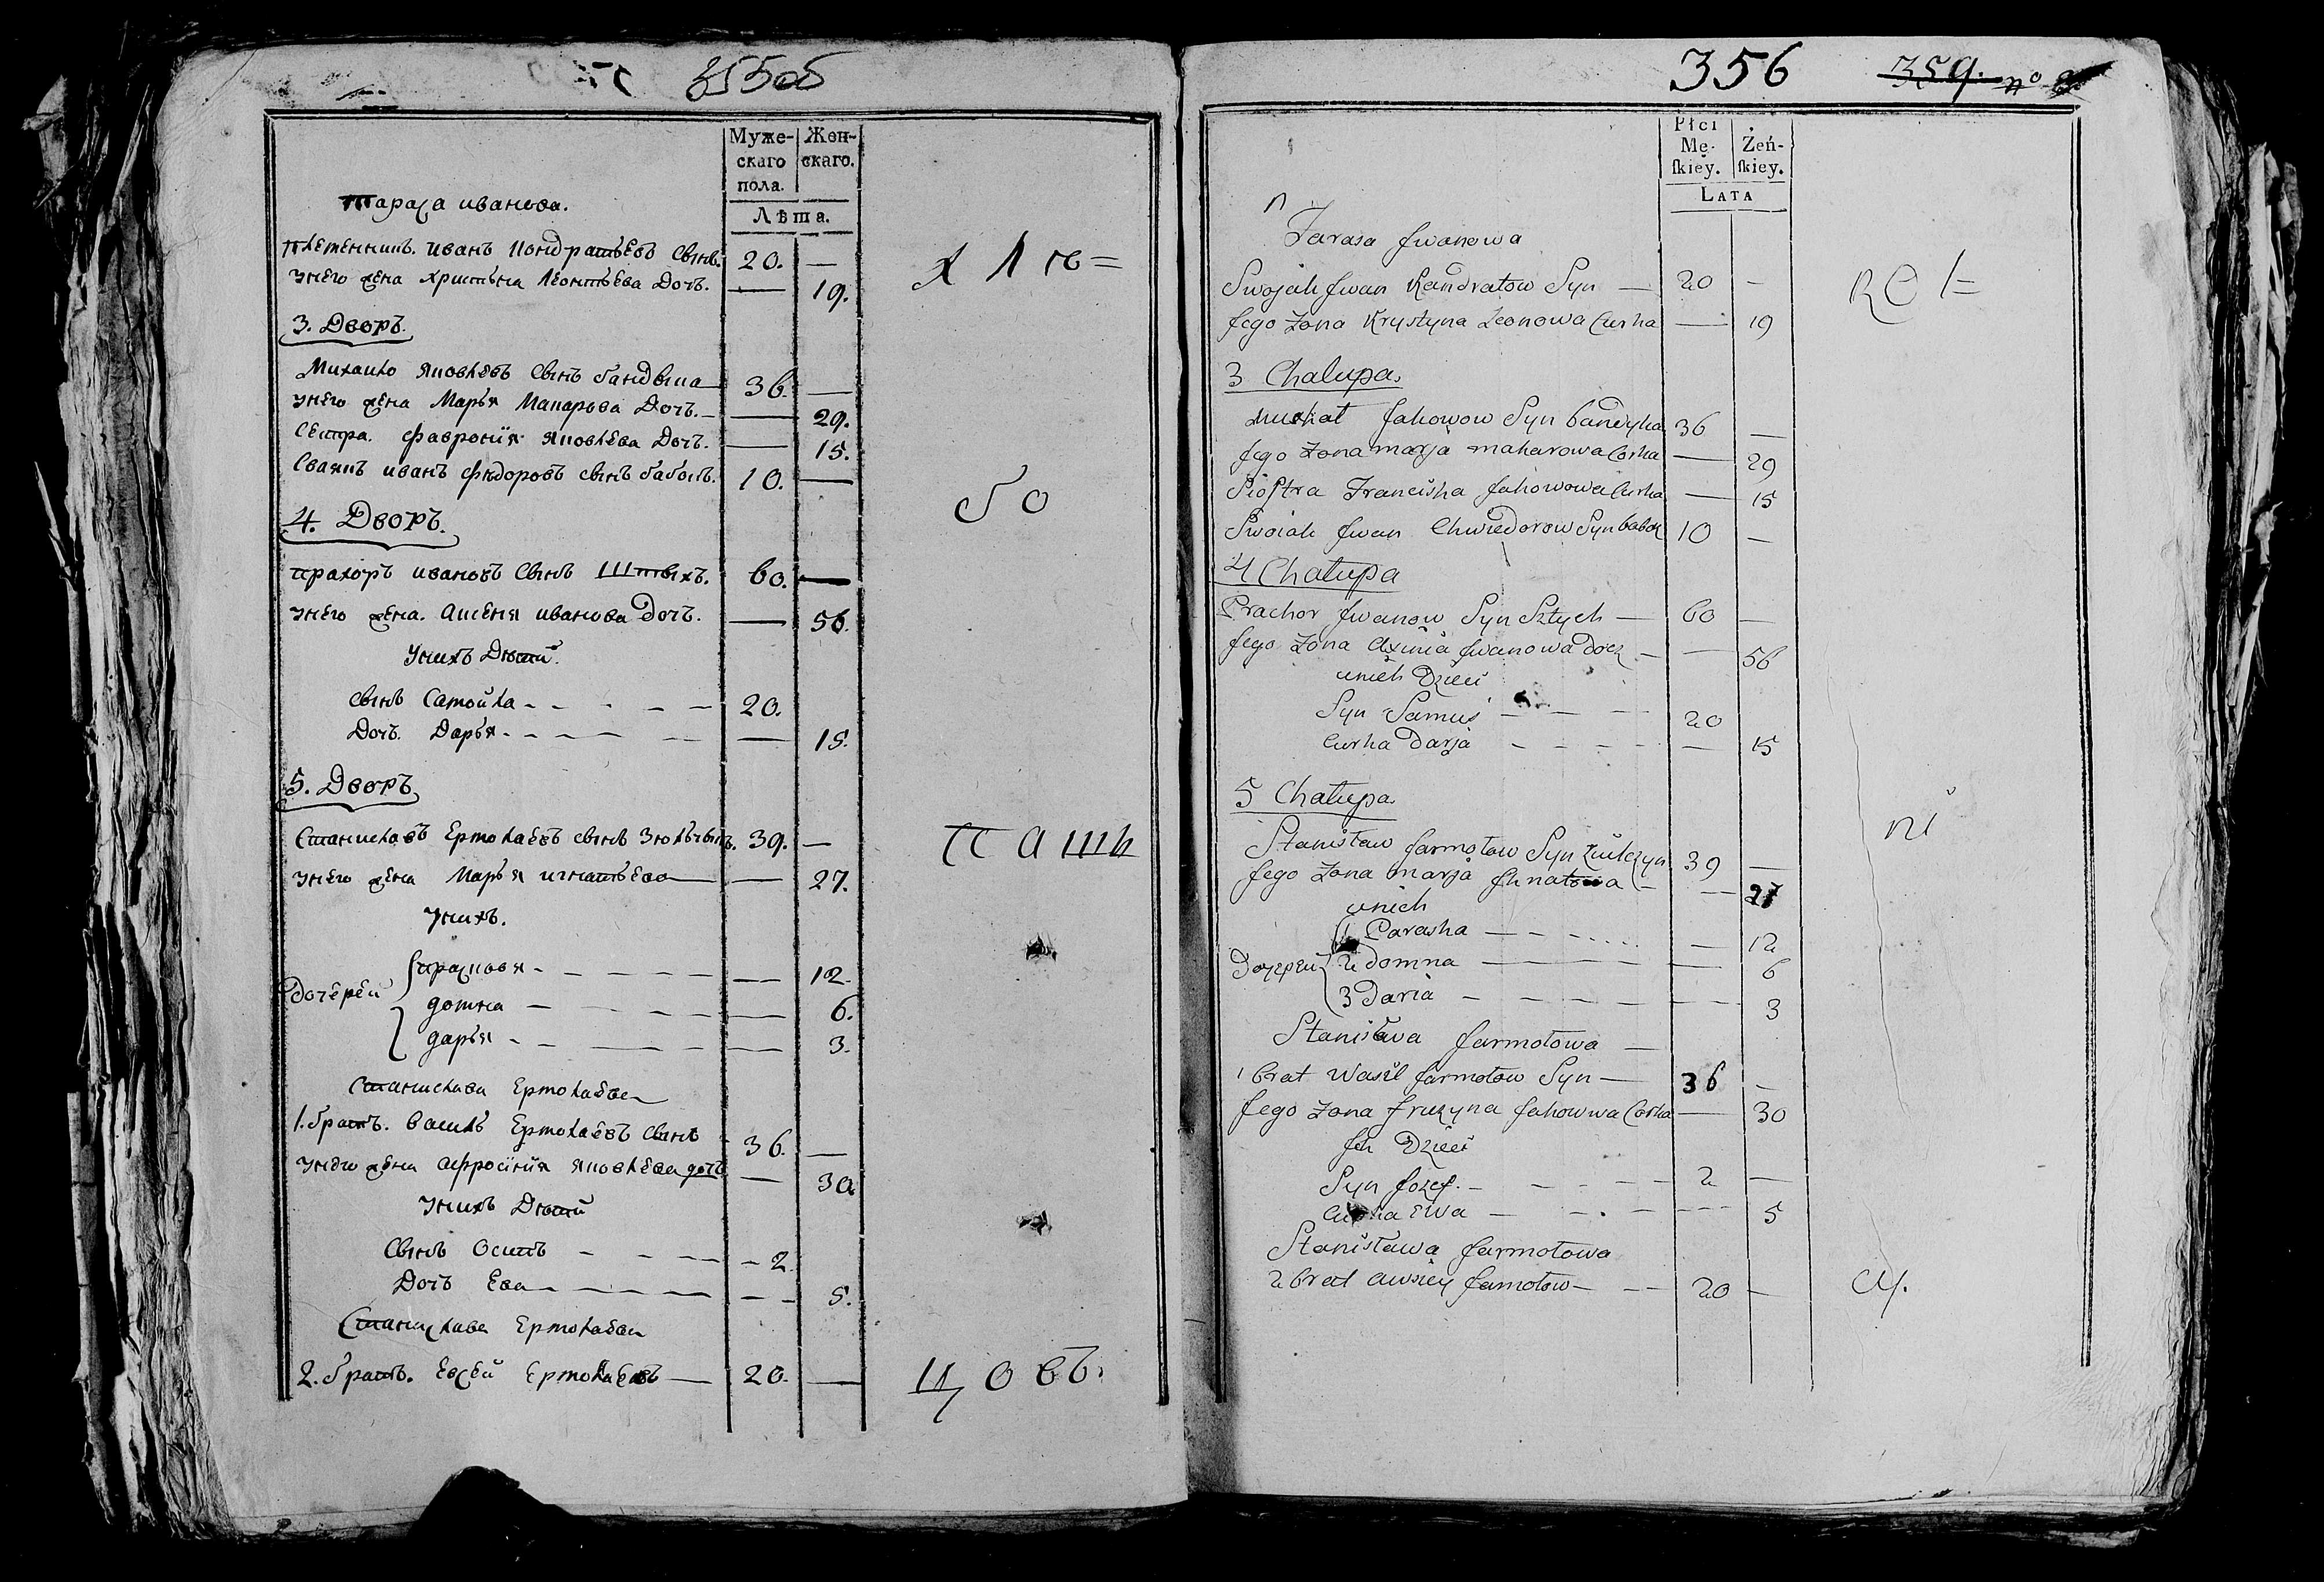 355об
Муже-
скаго
пола.
Жен-
скаго.
Лѣта.
Тараса иванова.
Племенникъ. иванъ Кондратьевъ сынъ. 20. —
Унего жена христина Леонтьева Дочь. — 19.
х л ѣ =
3. Дворъ.
Михаило яковлевъ сынъ бандыка 36. —
Унего жена Марья Макарова Дочь. — 29.
Сестра. фавронiя яковлева Дочь. — 15.
Сваякъ иванъ фѣдоровъ сынъ бабокъ. 10. —
б о
4. Дворъ.
прахоръ ивановъ сынъ Штыхъ. 60. —
Унего жена. аксеня иванова Дочь. — 56.
Унихъ Дѣтй.
сынъ Самойла - - - - - 20.
Дочь. Дарья - - - - - 15.
5. Дворъ
Станиславъ Ермолаевъ сынъ Зюльчынъ. 39. —
п а ш н
Унего жена Марья игнатьева — 27.
Унихъ.
Дочерей
прасковя - - - - - 12.
домна - - - - - 6.
дарья - - - - - 3.
Станислава Ермолаева
1. братъ. василь Ермолаевъ сынъ 36. —
Унего жена афросiнiя яковлева дочь — 30.
Унихъ Дѣтй
Сынъ Осипъ - - - - 2.
Дочь Ева - - - - 5.
Станислава Ермолаева
2. братъ. Евсей Ермолаевъ — 20. —
ц о въ.
356
359.
Płci
Mę-
ſkiey.
Żeń-
ſkiey.
LATA
Tarasa Jwanowa
Swojak Jwan Kandratow Syn — 20 —
Jego Zona Krystyna Leonowa Curka — 19
3 Chalupa.
Michał Jakowow Syn bandyka 36 —
Jego Zona marja makarowa Corka — 29
Siostra Franciska Jakowowa Curka — 15
Swoiak Jwan Chwiedorow Syn babok 10 —
4 Chałupa
Prachor Jwanow Syn Sztych — 60 —
Jego Zona Axinia Jwanowa docz — 56
unich Dzieci
Syn Samuś — — — 20
Curka Darja - - - - — 15
5 Chałupa.
Stanisław Jarmołow Syn Ziulczyn 39 —
ni
Jego Zona marja Jhnatowa — 27
unich
1 Paraska — - - - — 12
Дочереи
2 domna — — — 6
3 Daria - - - - — 3
Stanisława Jarmołowa —
1 brat Wasil Jarmołow Syn — 36 —
Jego Zona Fruzyna Jakowwa Corka — 30
Jch Dzieci
Syn Jozef. - - - - 2 —
Curka Ewa - - - - 5
Stanisława Jarmołowa
2 brat Awsiey Jarmołow — - - 20 —